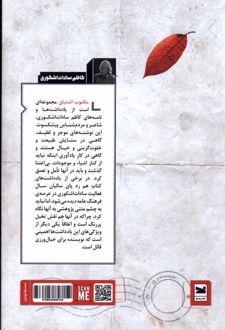 کاظم سادات‌اشکوری
مکتوب اشتیاق مجموعه‌ای
است از یادداشت‌ها و
نامه‌های کاظم سادات‌اشکوری،
شاعر و مردم‌شناس پیشکسوت.
این نوشته‌های موجز و لطیف،
گاهی در ستایش طبیعت و
خلوت‌گزینی و خیال هستند، و
گاهی در کار یادآوری اینکه نباید
از کنار اشیاء و موجودات، بی‌اعتنا
گذشت و باید در آنها تأمل و تعمق
کرد. در برخی از یادداشت‌های
کتاب هم رد پای سالیان سال
فعالیت سادات‌اشکوری در عرصه‌ی
فرهنگ عامه دیده می‌شود، اما نباید
به چشم متنی پژوهشی به آنها نگاه
کرد، چراکه در آنها هم نقش تخیل
پررنگ است و اتفاقاً یکی دیگر از
ویژگی‌های این یادداشت‌ها اهمیتی
است که نویسنده برای خیال‌ورزی
قائل است.
SCAN
ME